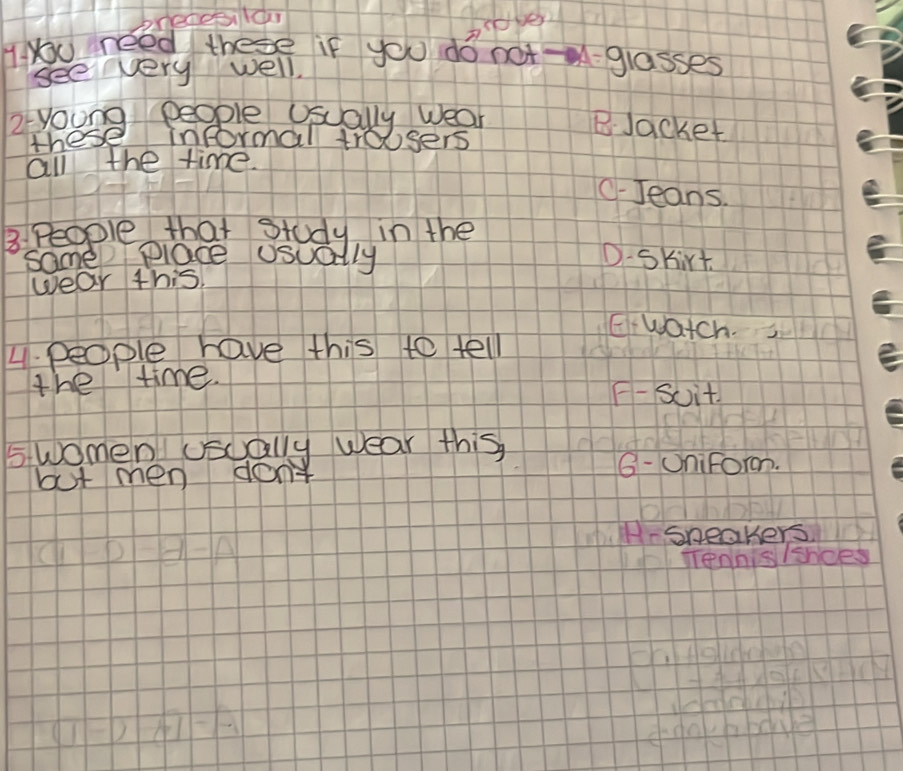 necesitar
1-You need these if you do not - A-glasses
see very well.
2-young people usually wear
these informal trousers
all the time.
B-Jacket
C-Jeans.
3.People that study in the
same place usually
wear this.
D-Skirt.
E-Watch.
4.people have this to tell
the time.
F-Suit.
5.women usually wear this,
but men don't
G-uniform.
H-Speakers.
Tennis/shoes